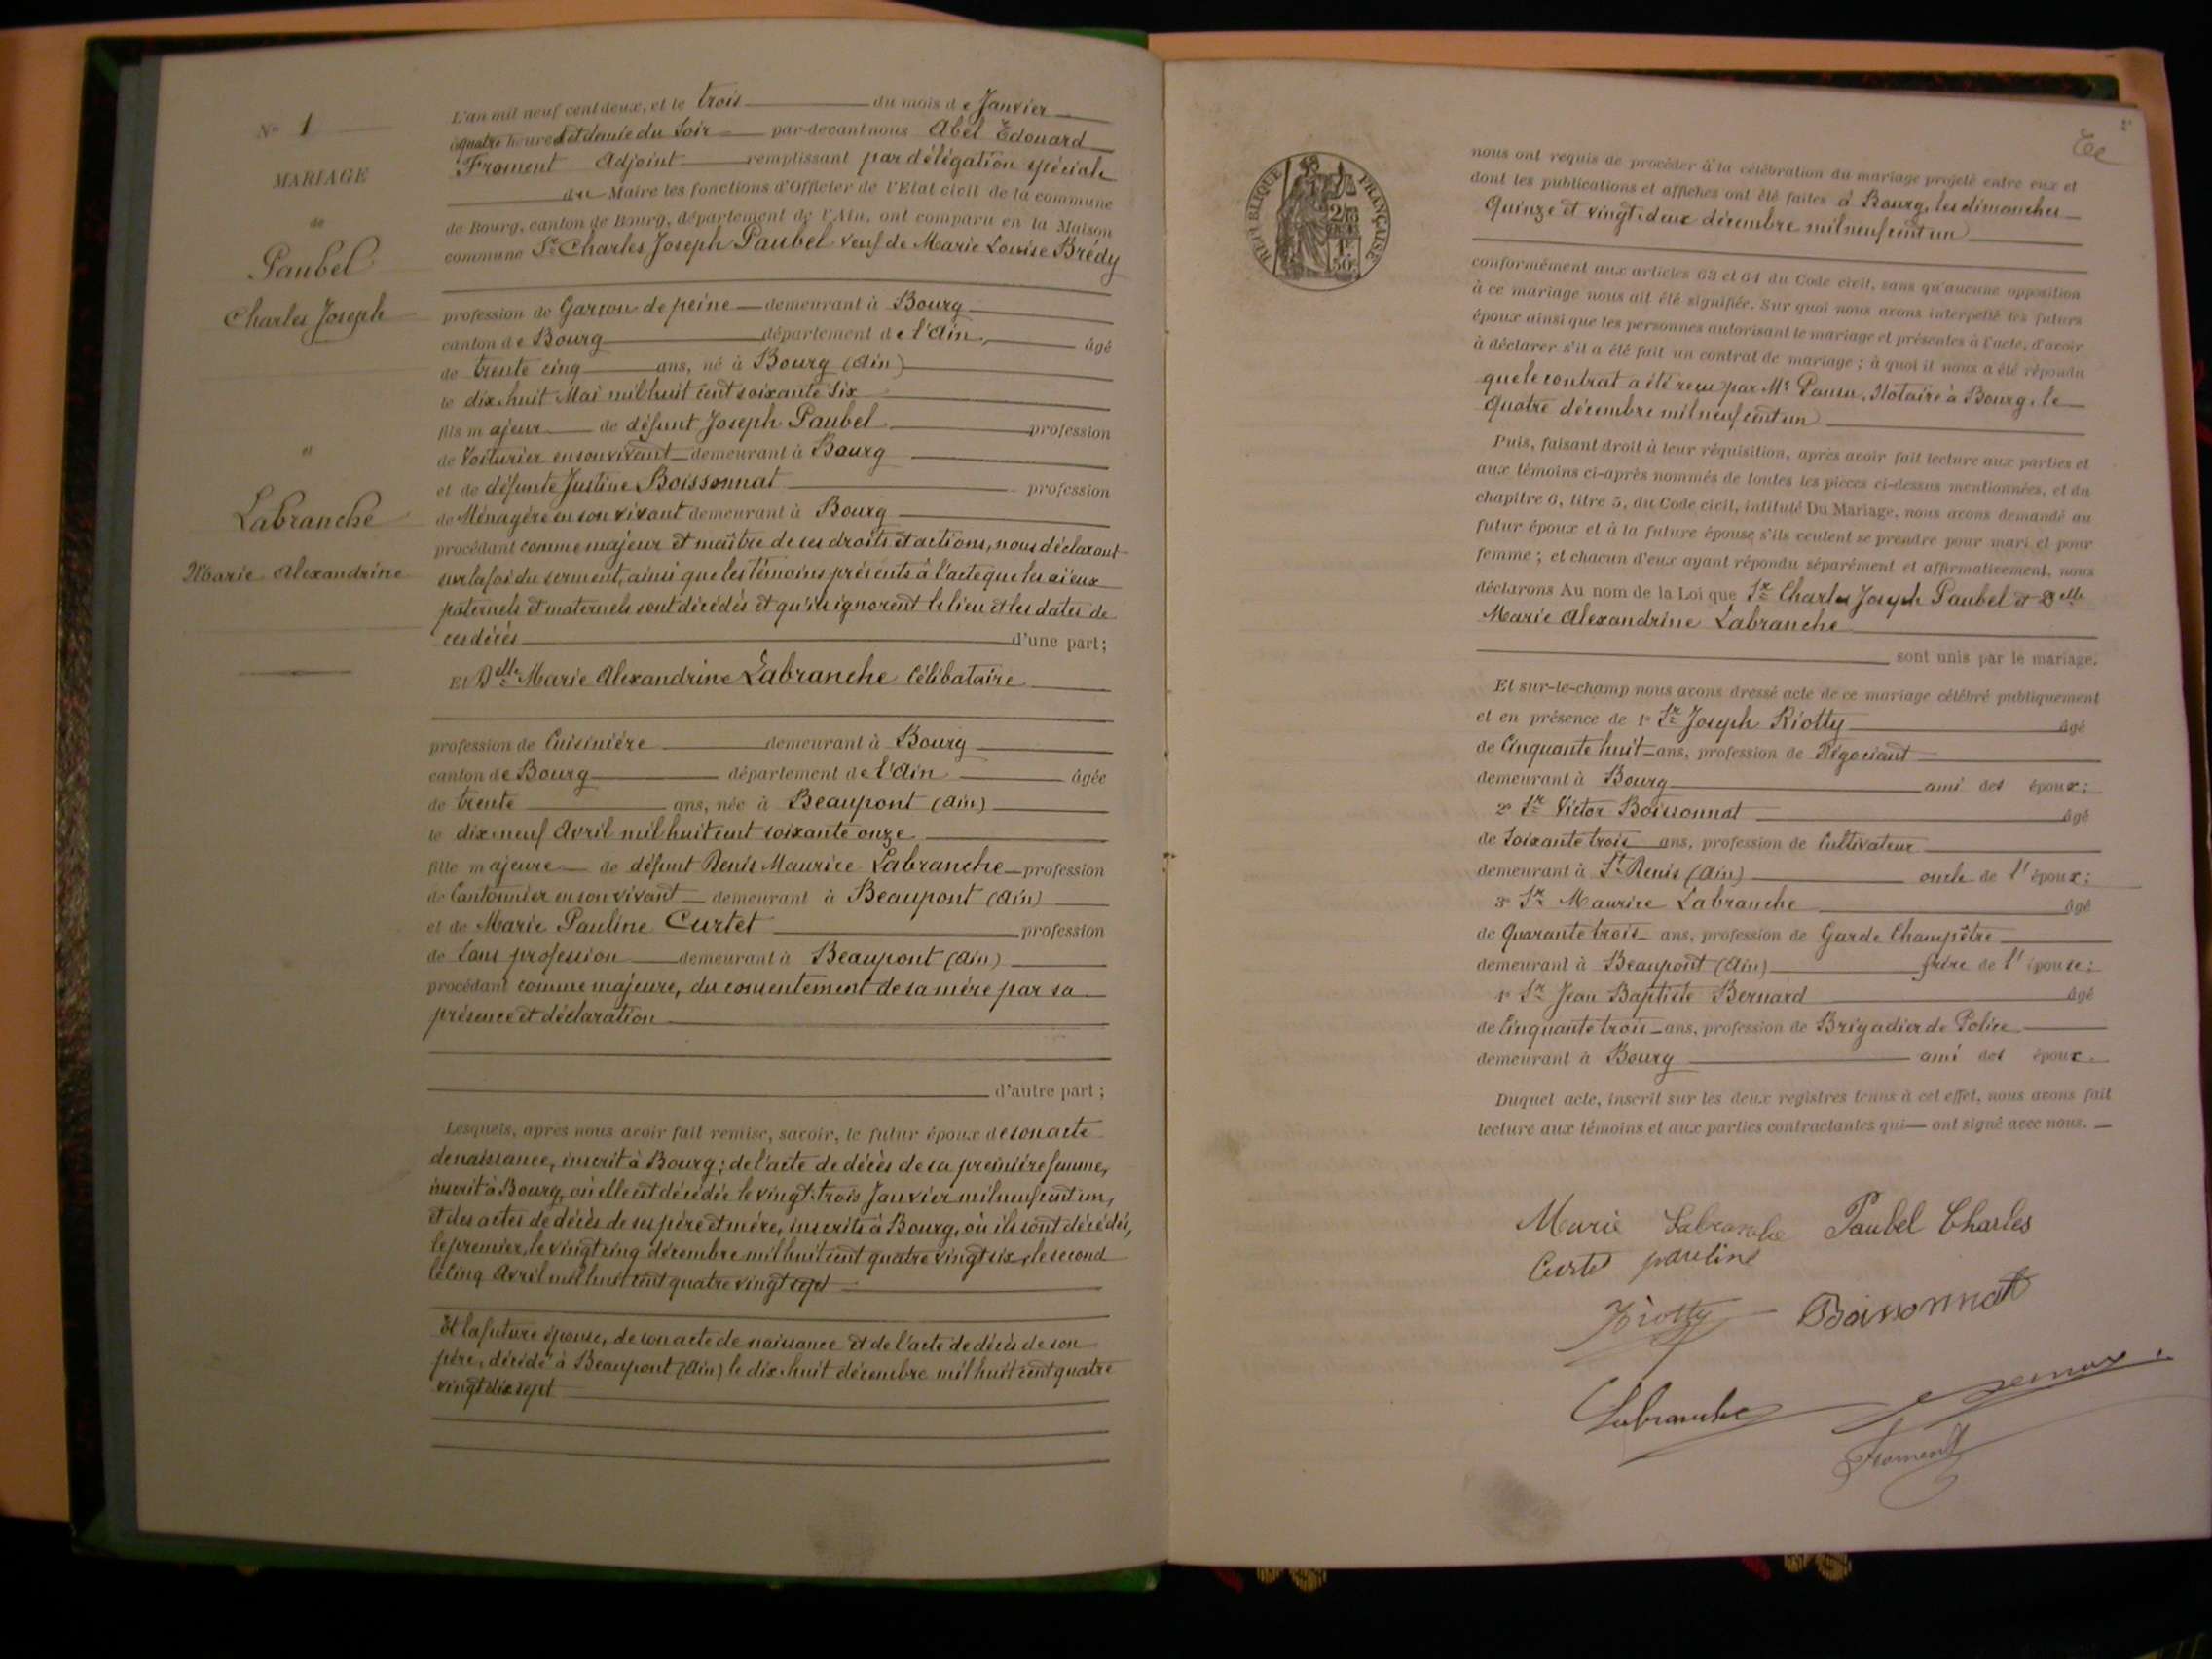 N° 1
MARIAGE
de
Paubel
Charles Joseph
et
Labranche
Marie Alexandrine
L'an mil neuf cent deux, et le trois du mois de Janvier
à quatre heures et demie du Soir par-devant nous Abel Edouard
Froment Adjoint remplissant par délégation spéciale
du Maire les fonctions d'Officier de l'Etat civil de la commune
de Bourg, canton de Bourg, département de l'Ain, ont comparu en la Maison
commune Sr Charles Joseph Paubel veuf de Marie Louise Brédy
profession de Garçon de peine demeurant à Bourg
canton de Bourg département de l'Ain, âgé
de trente cinq ans, né à Bourg (Ain)
le dix huit Mai mil huit cent soixante Six
fils majeur de défunt Joseph Paubel profession
de Voiturier en son vivant demeurant à Bourg
et de défunte Justine Boissonnat profession
de Ménagère en son vivant demeurant à Bourg
procédant comme majeur et maître de ses droits et actions, nous déclarant
sur la foi du serment, ainsi que les témoins présents à l'acte que les aïeux
paternels et maternels sont décédés et qu'ils ignorent le lieu et les dates de
ces décès d'une part;
Et Delle Marie Alexandrine Labranche Célibataire
profession de Cuisinière demeurant à Bourg
canton de Bourg département de l'Ain âgée
de trente ans, née à Beaupont (Ain)
le dix-neuf Avril mil huit cent soixante onze
fille majeure de défunt Denis Maurice Labranche profession
de Cantonnier en son vivant demeurant à Beaupont (Ain)
et de Marie Pauline Curtet profession
de Sans profession demeurant à Beaupont (Ain)
procédant comme majeure, du consentement de sa mère par sa
présence et déclaration
d'autre part;
Lesquels, après nous avoir fait remise, savoir, le futur époux de son acte
de naissance, inscrit à Bourg; de l'acte de décès de sa première femme,
inscrit à Bourg, où elle est décédée le vingt-trois Janvier mil neuf cent un,
et des actes de décès de ses père et mère, inscrits à Bourg, où ils sont décédés,
le premier, le vingt cinq décembre mil huit cent quatre vingt six, le second
le cinq Avril mil huit cent quatre vingt sept
Et la future épouse, de son acte de naissance et de l'acte de décès de son
père, décédé à Beaupont (Ain) le dix-huit décembre mil huit cent quatre
vingt dix sept
RÉPUBLIQUE FRANÇAISE
nous ont requis de procéder à la célébration du mariage projeté entre eux et
dont les publications et affiches ont été faites à Bourg, les dimanches
Quinze et vingt-deux décembre mil neuf cent un
conformément aux articles 63 et 64 du Code civil, sans qu'aucune opposition
à ce mariage nous ait été signifiée. Sur quoi nous avons interpellé les futurs
époux ainsi que les personnes autorisant le mariage et présentes à l'acte, d'avoir
à déclarer s'il a été fait un contrat de mariage; à quoi il nous a été répondu
que le contrat a été reçu par Me, Notaire à Bourg, le
Quatre décembre mil neuf cent un
Puis, faisant droit à leur réquisition, après avoir fait lecture aux parties et
aux témoins ci-après nommés de toutes les pièces ci-dessus mentionnées, et du
chapitre 6, titre 5, du Code civil, intitulé Du Mariage, nous avons demandé au
futur époux et à la future épouse s'ils veulent se prendre pour mari et pour
femme; et chacun d'eux ayant répondu séparément et affirmativement, nous
déclarons Au nom de la Loi que Sr Charles Joseph Paubel et Delle
Marie Alexandrine Labranche
sont unis par le mariage.
Et sur-le-champ nous avons dressé acte de ce mariage célébré publiquement
et en présence de 1° Sr Joseph Riotty âgé
de Cinquante huit ans, profession de Négociant
demeurant à Bourg ami des époux;
2° Sr Victor Boissonnat âgé
de Soixante trois ans, profession de Cultivateur
demeurant à St Denis (Ain) oncle de l'époux;
3° Sr Maurice Labranche âgé
de Quarante trois ans, profession de Garde Champêtre
demeurant à Beaupont (Ain) frère de l'épouse;
4° Sr Jean Baptiste Bernard âgé
de Cinquante trois ans, profession de Brigadier de Police
demeurant à Bourg ami des époux.
Duquel acte, inscrit sur les deux registres tenus à cet effet, nous avons fait
lecture aux témoins et aux parties contractantes qui ont signé avec nous.
Marie Labranche Paubel Charles
Curtet pauline
Riotty Boissonnat
Labranche
Froment